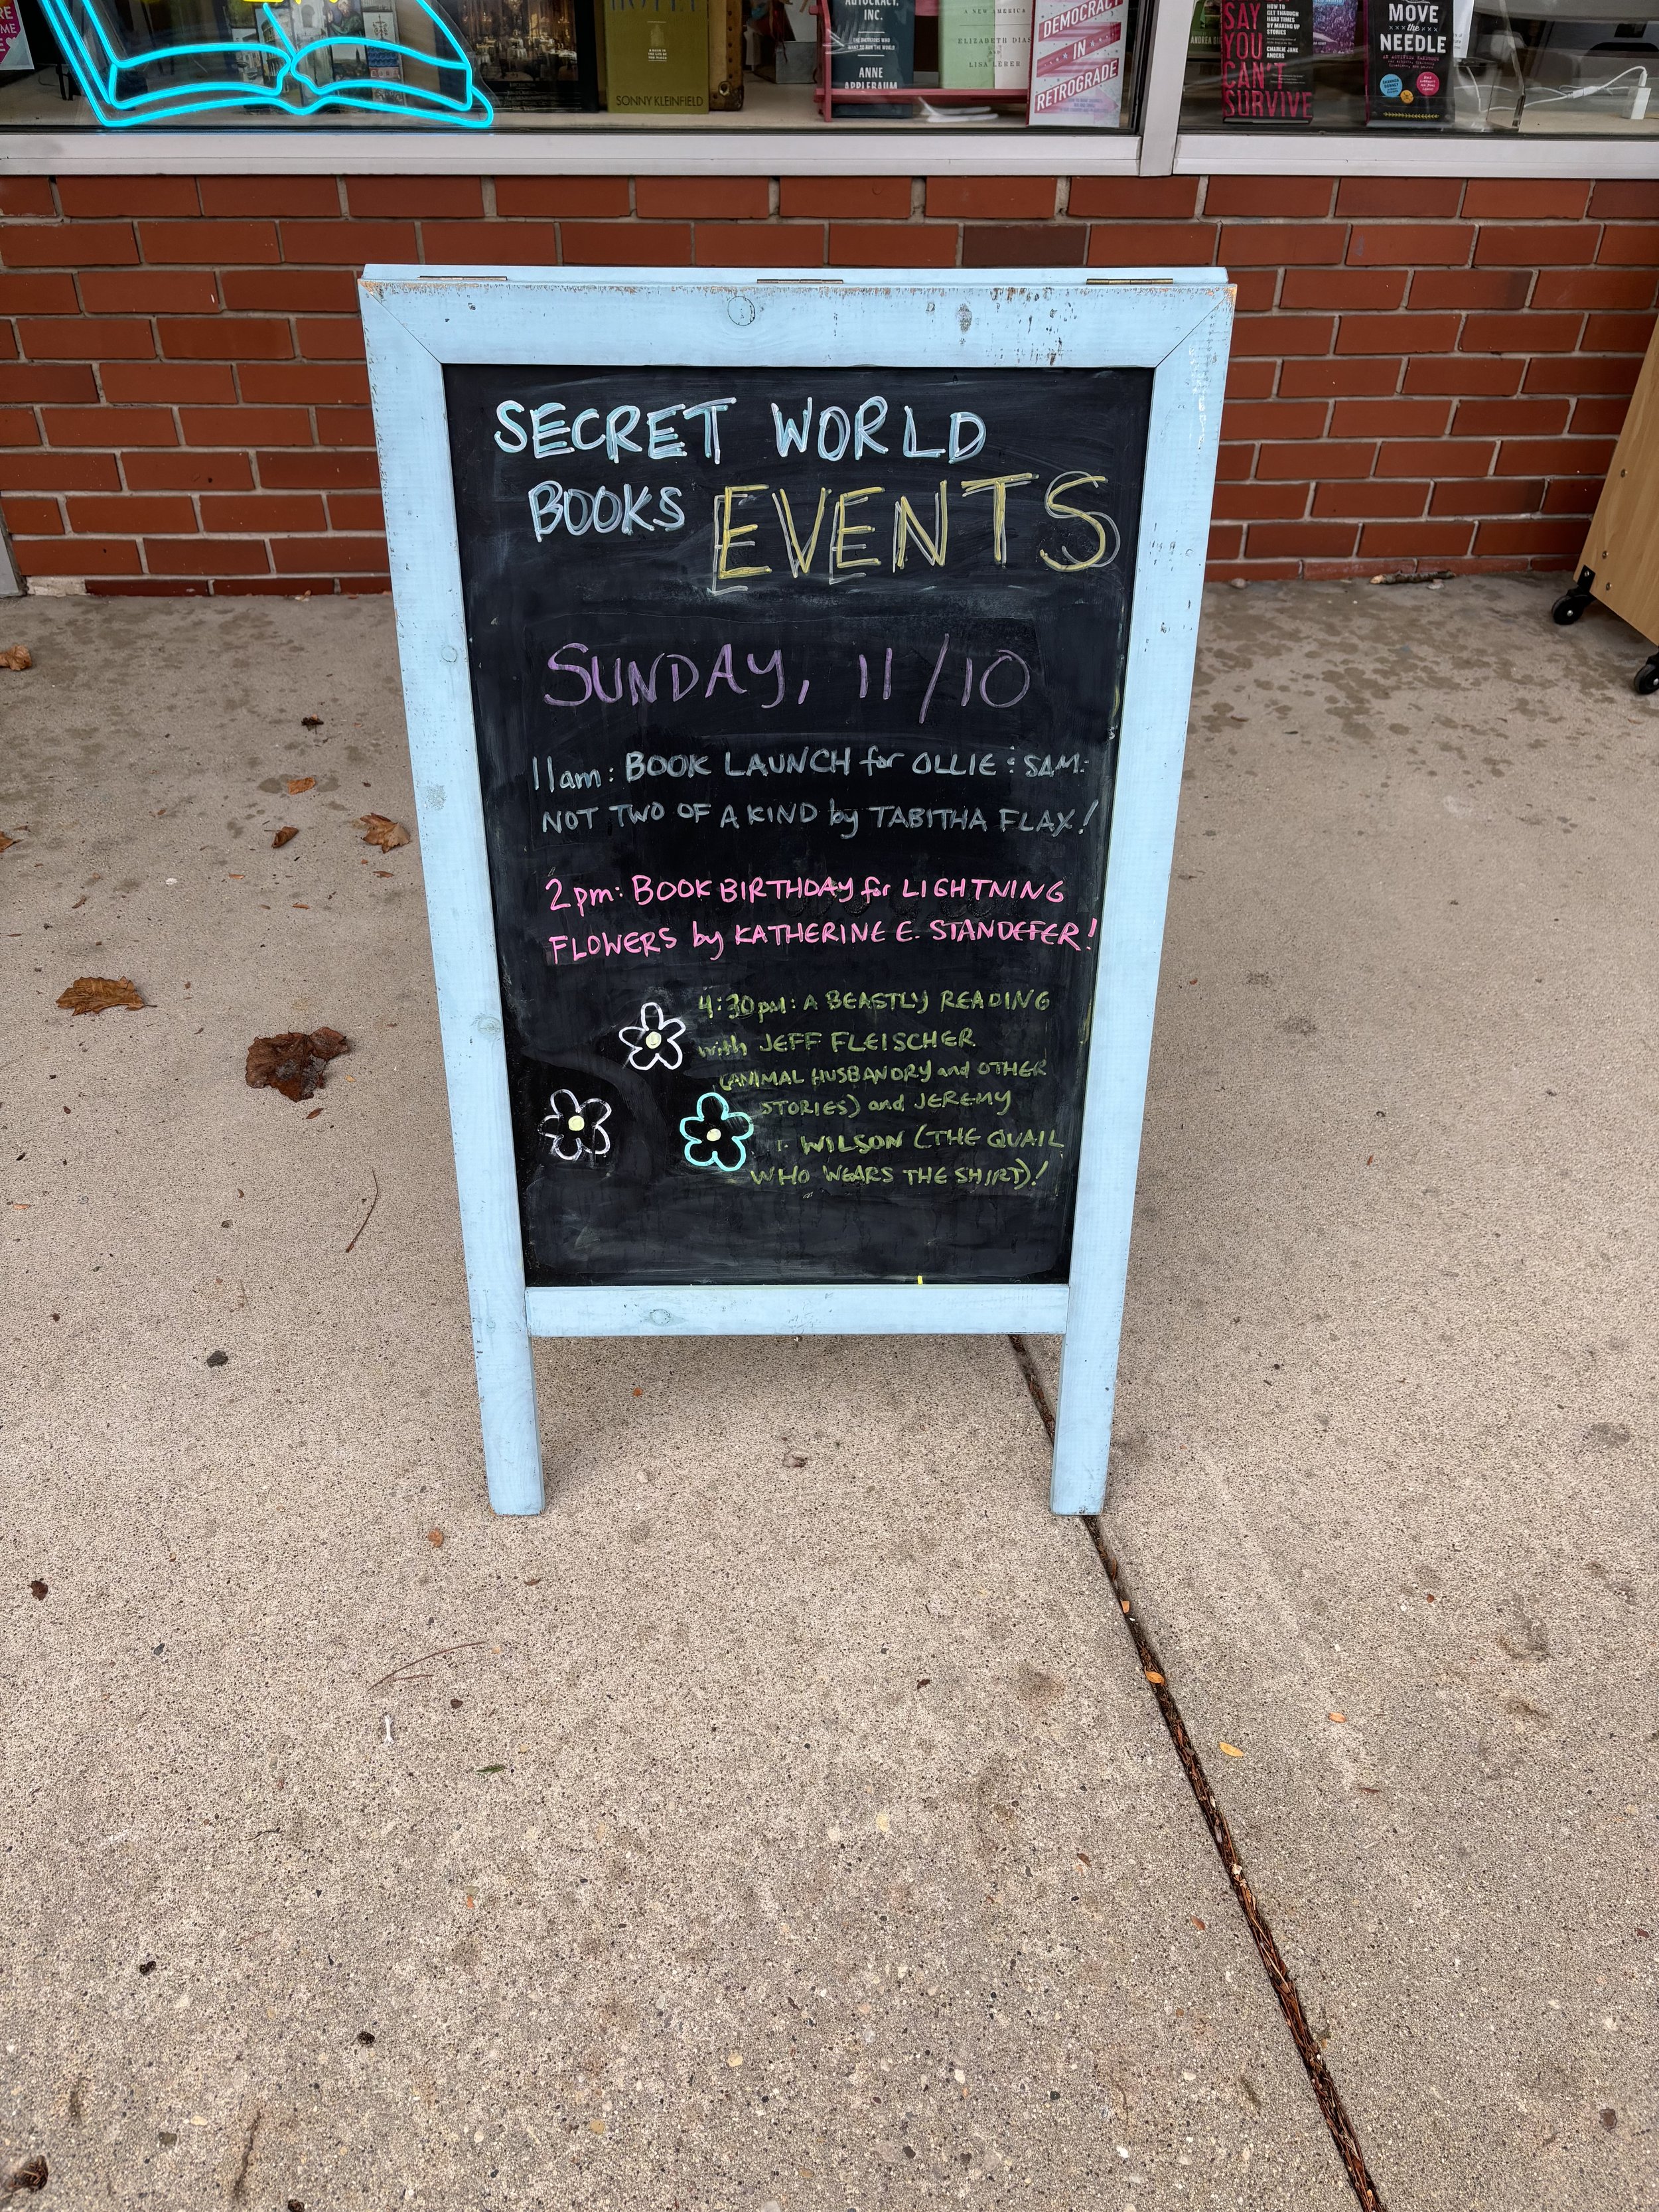 SONNY KLEINFIELD
AUTOCRACY,
INC.
ANNE
APPLEBAUM
A NEW AMERICA
ELIZABETH DIAS
AND
LISA LERER
DEMOCRACY
IN
RETROGRADE
SAY
YOU
CAN'T
SURVIVE
HOW TO
GET THROUGH
HARD TIMES
BY MAKING UP
STORIES
CHARLIE JANE
ANDERS
MOVE
the
NEEDLE
SECRET WORLD
BOOKS EVENTS
SUNDAY, 11/10
11am: BOOK LAUNCH for OLLIE : SAM:
NOT TWO OF A KIND by TABITHA FLAX!
2pm: BOOK BIRTHDAY for LIGHTNING
FLOWERS by KATHERINE E. STANDEFER!
4:30pm: A BEASTLY READING
with JEFF FLEISCHER
(ANIMAL HUSBANDRY and OTHER
STORIES) and JEREMY
T. WILSON (THE QUAIL
WHO WEARS THE SHIRT)!